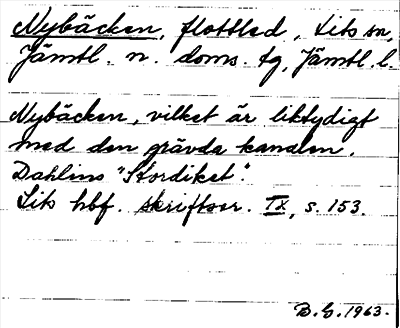 Nybäcken, flottled, Lits sn,
Jämtl. n. doms. tg, Jämtl. l.
Nybäcken, vilket är liktydigt
med den grävda kanalen.
Dahlins "Stordiket".
Lits hbf. skriftser. IX, s. 153.
B.G. 1963.